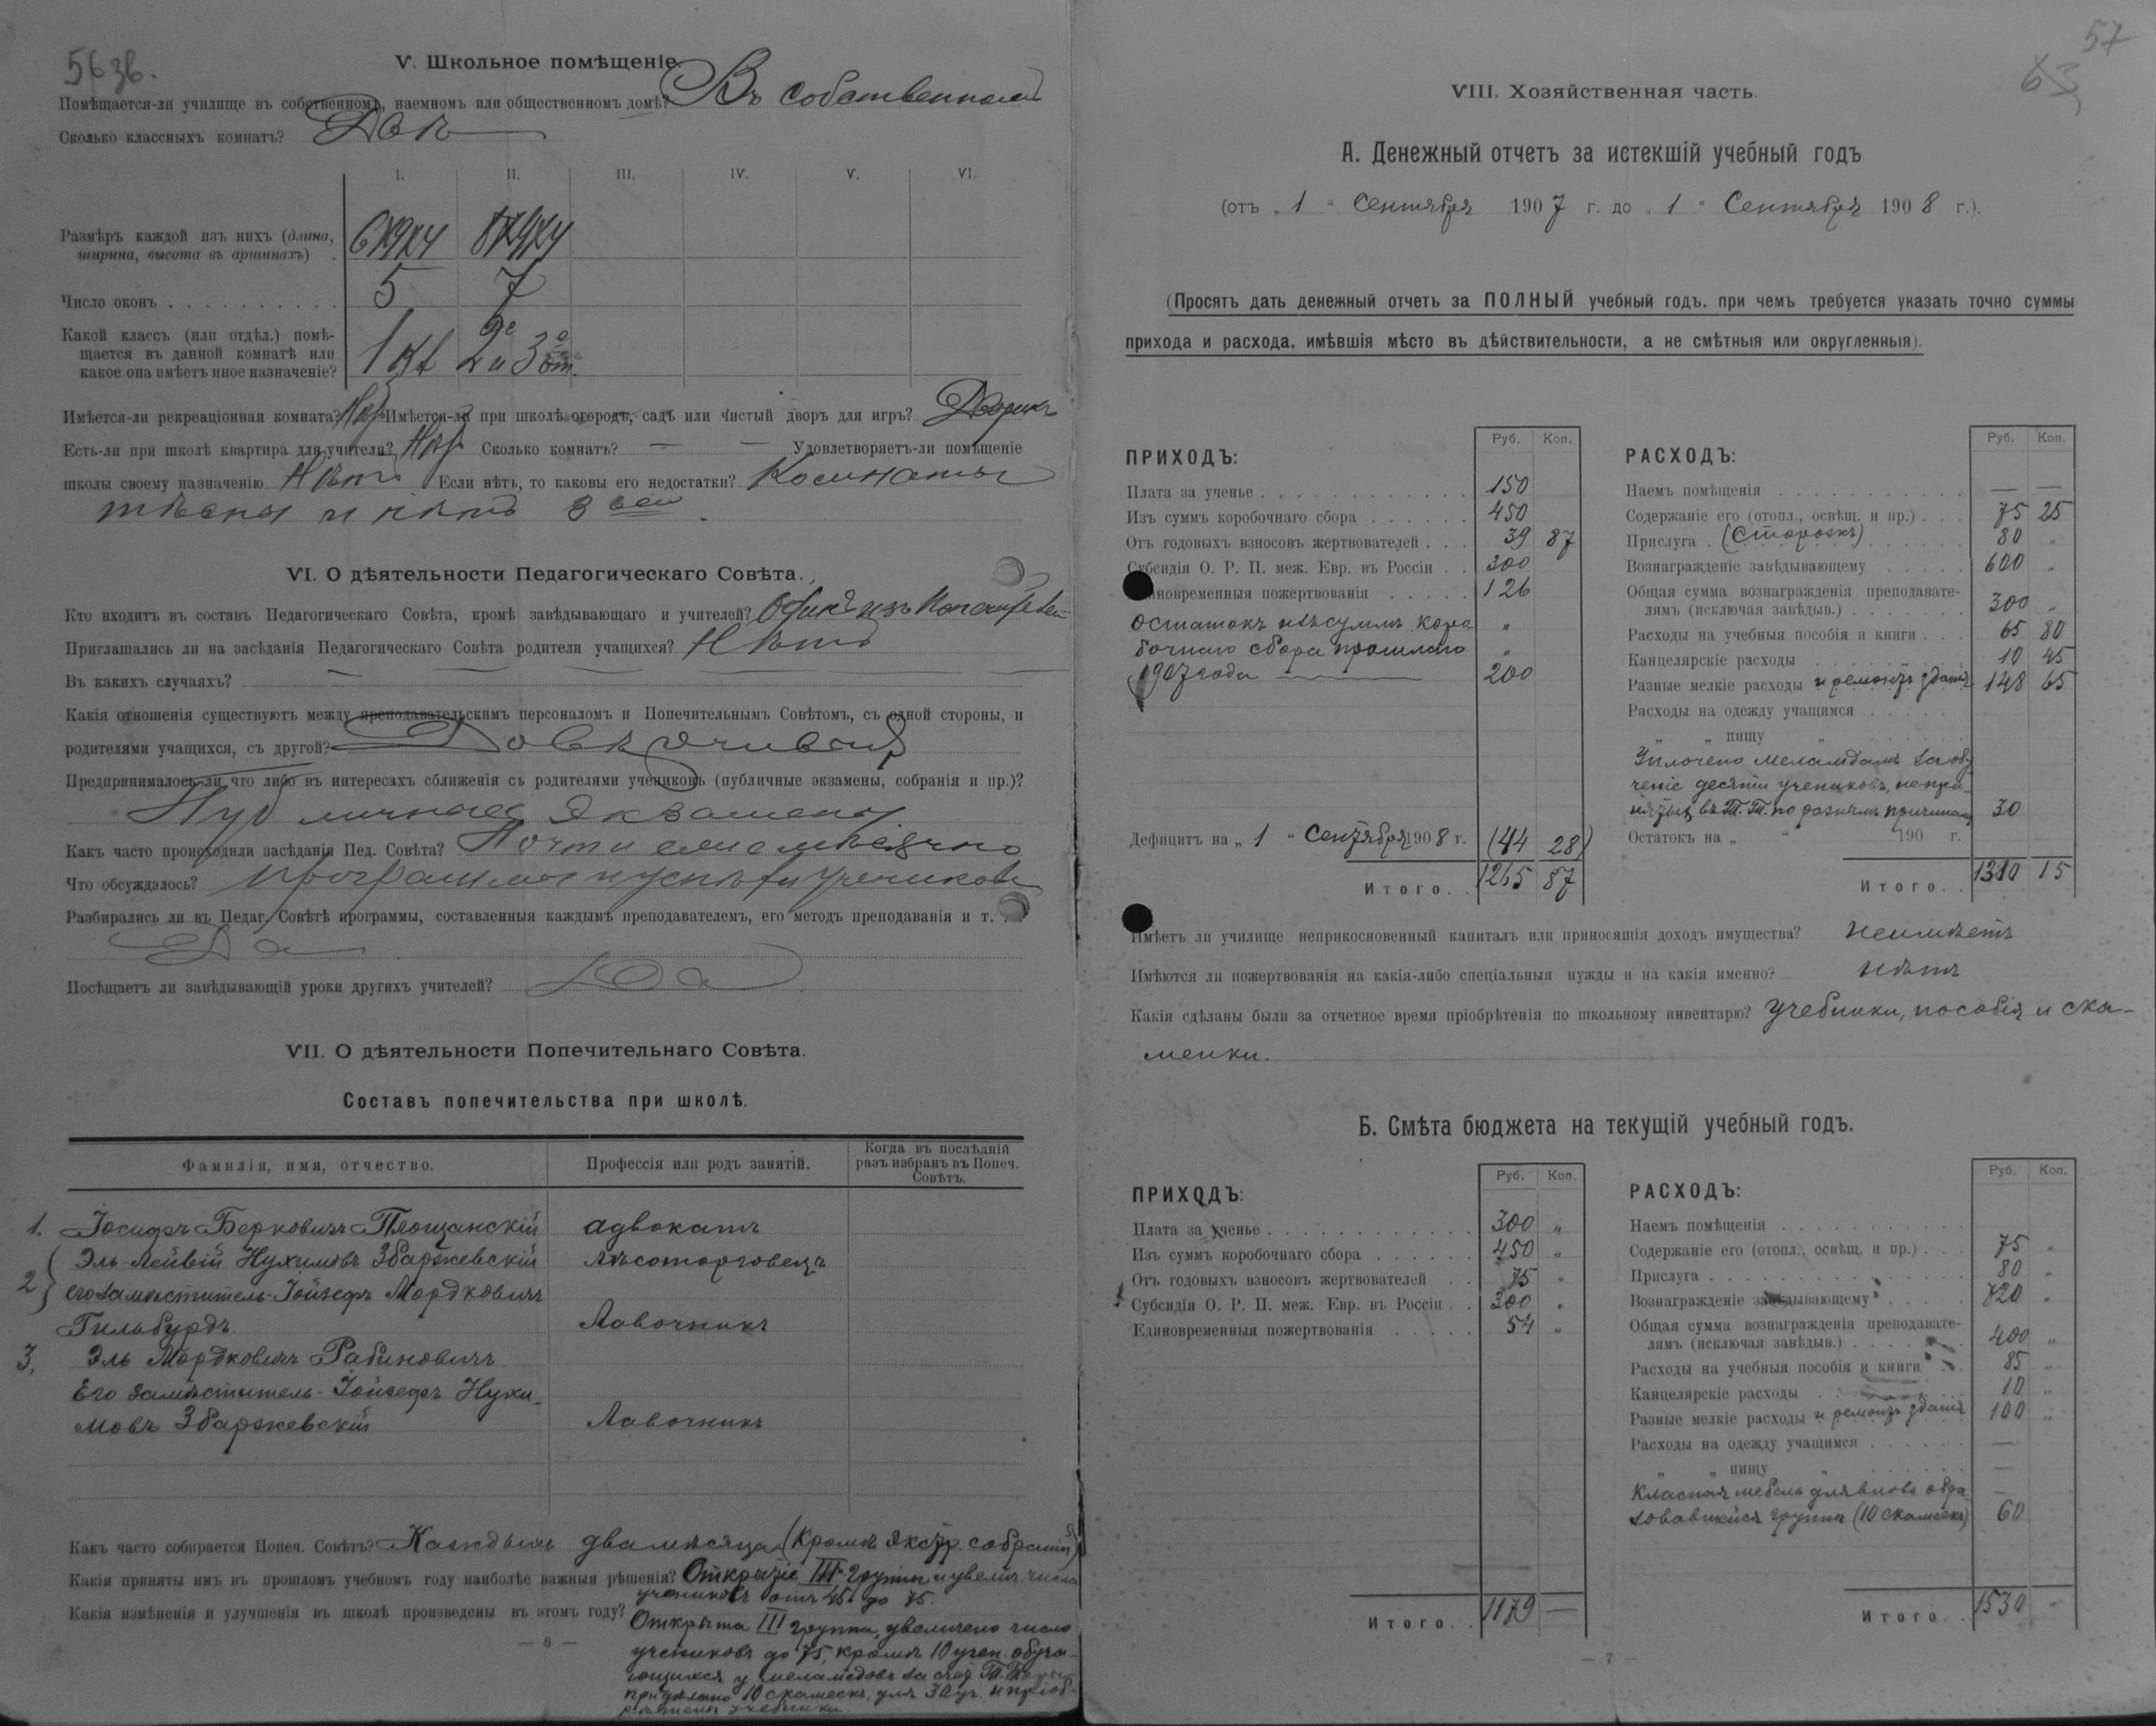 56 зв.
V. Школьное помѣщеніе.
Помѣщается-ли училище въ собственномъ, наемномъ или общественномъ домѣ? Въ собственномъ
Сколько классныхъ комнатъ? Двѣ
I. II. III. IV. V. VI.
Размѣръ каждой изъ нихъ (длина, 6х9х4 8х9х4
ширина, высота въ аршинахъ)
Число оконъ . . . . . . . . . . 5 7
Какой классъ (или отдѣл.) помѣ-
щается въ данной комнатѣ или 1 кл 2е и 3е от.
какое она имѣетъ иное назначеніе?
Имѣется-ли рекреаціонная комната? Нѣт Имѣется-ли при школѣ огородъ, садъ или чистый дворъ для игръ? Дворикъ
Есть-ли при школѣ квартира для учителя? Нѣт Сколько комнатъ? — — Удовлетворяетъ-ли помѣщеніе
школы своему назначенію Нѣтъ Если нѣтъ, то каковы его недостатки? Комнаты
тѣсны и нѣтъ 3ей
VI. О дѣятельности Педагогическаго Совѣта.
Кто входитъ въ составъ Педагогическаго Совѣта, кромѣ завѣдывающаго и учителей? Одинъ изъ
Приглашались ли на засѣданія Педагогическаго Совѣта родители учащихся? Нѣтъ
Въ какихъ случаяхъ? —
Какія отношенія существуютъ между преподавательскимъ персоналомъ и Попечительнымъ Совѣтомъ, съ одной стороны, и
родителями учащихся, съ другой?
Предпринималось-ли что либо въ интересахъ сближенія съ родителями учениковъ (публичные экзамены, собранія и пр.)?
Публичные экзамены.
Какъ часто происходили засѣданія Пед. Совѣта? Почти ежемѣсячно
Что обсуждалось? Программы и успѣхи учениковъ
Разбирались ли въ Педаг. Совѣтѣ программы, составленныя каждымъ преподавателемъ, его методъ преподаванія и т.
Да
Посѣщаетъ ли завѣдывающій уроки другихъ учителей? Да
VII. О дѣятельности Попечительнаго Совѣта.
Составъ попечительства при школѣ.
Фамилія, имя, отчество. Профессія или родъ занятій. Когда въ послѣдній разъ избранъ въ Попеч. Совѣтъ.
1. Іосифъ Берковичъ Площанскій адвокатъ
2} Эль-Лейвій Нухимовъ Збаржевскій Лѣсоторговецъ
его замѣститель Іойзефъ Мордковичъ
Гильбурдъ Лавочникъ
3. Эль Мордковичъ Рабиновичъ
Его замѣститель Іойзефъ Нухи-
мовъ Збаржевскій Лавочникъ
Какъ часто собирается Попеч. Совѣтъ? Каждыхъ два мѣсяца (Кромѣ экстр. собраній)
Какія приняты имъ въ прошломъ учебномъ году наиболѣе важныя рѣшенія? Открытіе III группы и увелич. числа
учениковъ отъ 45 до 75.
Какія измѣненія и улучшенія въ школѣ произведены въ этомъ году?
Открыта III группа, увеличено число
учениковъ до 75, кромѣ 10 учен. обуча-
ющихся у меламедовъ за счет Т. Торы
придѣлано 10 скамеекъ, для 30 уч. и пріоб-
рѣтены учебники.
— 6 —
57
63
VIII. Хозяйственная часть.
А. Денежный отчетъ за истекшій учебный годъ
(отъ „ 1 “ Сентября 1907 г. до „ 1 “ Сентября 1908 г.).
(Просятъ дать денежный отчетъ за ПОЛНЫЙ учебный годъ, при чемъ требуется указать точно суммы
прихода и расхода, имѣвшія мѣсто въ дѣйствительности, а не смѣтныя или округленныя).
Руб. Коп.
ПРИХОДЪ:
Плата за ученье . . . 150
Изъ суммъ коробочнаго сбора . . . 450
Отъ годовыхъ взносовъ жертвователей . . . 39 87
Субсидія О. Р. П. меж. Евр. въ Россіи . . 300
Единовременныя пожертвованія . . . 126
Остатокъ изъ суммъ коро- „
бочнаго сбора прошлаго „
1907 года — 200
Дефицитъ на „ 1 “ Сентября 1908 г. (44 28)
Итого . . 1265 87
Руб. Коп.
РАСХОДЪ:
Наемъ помѣщенія . . . — —
Содержаніе его (отопл., освѣщ. и пр.) . . . 75 25
Прислуга . (Сторожъ) 80 „
Вознагражденіе завѣдывающему . . . 600 „
Общая сумма вознагражденія преподавате-
лямъ (исключая завѣдыв.) . . . 300 „
Расходы на учебныя пособія и книги . . . 65 80
Канцелярскіе расходы . . . 10 45
Разные мелкіе расходы и ремонтъ зданія 148 65
Расходы на одежду учащимся . . .
„ „ пищу „
Уплочено меламдамъ за обу-
ченіе десяти учениковъ, непри-
нятыхъ въ Т. Т. по разнымъ причинамъ 30
Остатокъ на „ “ 190 г.
Итого . . 1310 15
Имѣетъ ли училище неприкосновенный капиталъ или приносящія доходъ имущества? Неимѣетъ
Имѣются ли пожертвованія на какія-либо спеціальныя нужды и на какія именно? Нѣтъ
Какія сдѣланы были за отчетное время пріобрѣтенія по школьному инвентарю? Учебники, пособія и ска-
мейки.
Б. Смѣта бюджета на текущій учебный годъ.
Руб. Коп.
ПРИХОДЪ:
Плата за ученье . . . 300 „
Изъ суммъ коробочнаго сбора . . . 450 „
Отъ годовыхъ взносовъ жертвователей . . 75 „
Субсидія О. Р. П. меж. Евр. въ Россіи . . 300 „
Единовременныя пожертвованія . . . 54 „
Итого . . 1179 —
Руб. Коп.
РАСХОДЪ:
Наемъ помѣщенія . . .
Содержаніе его (отопл., освѣщ. и пр.) . . . 75 „
Прислуга . . . 80 „
Вознагражденіе завѣдывающему . . . 720 „
Общая сумма вознагражденія преподавате-
лямъ (исключая завѣдыв.) . . . 400 „
Расходы на учебныя пособія и книги . . . 85 „
Канцелярскіе расходы . . . 10 „
Разные мелкіе расходы и ремонтъ зданія 100 „
Расходы на одежду учащимся . . . —
„ „ пищу „ —
Класная мебель для вновь обра- —
зовавшейся группы (10 скамеекъ) 60
Итого . . 1530 „
— 7 —